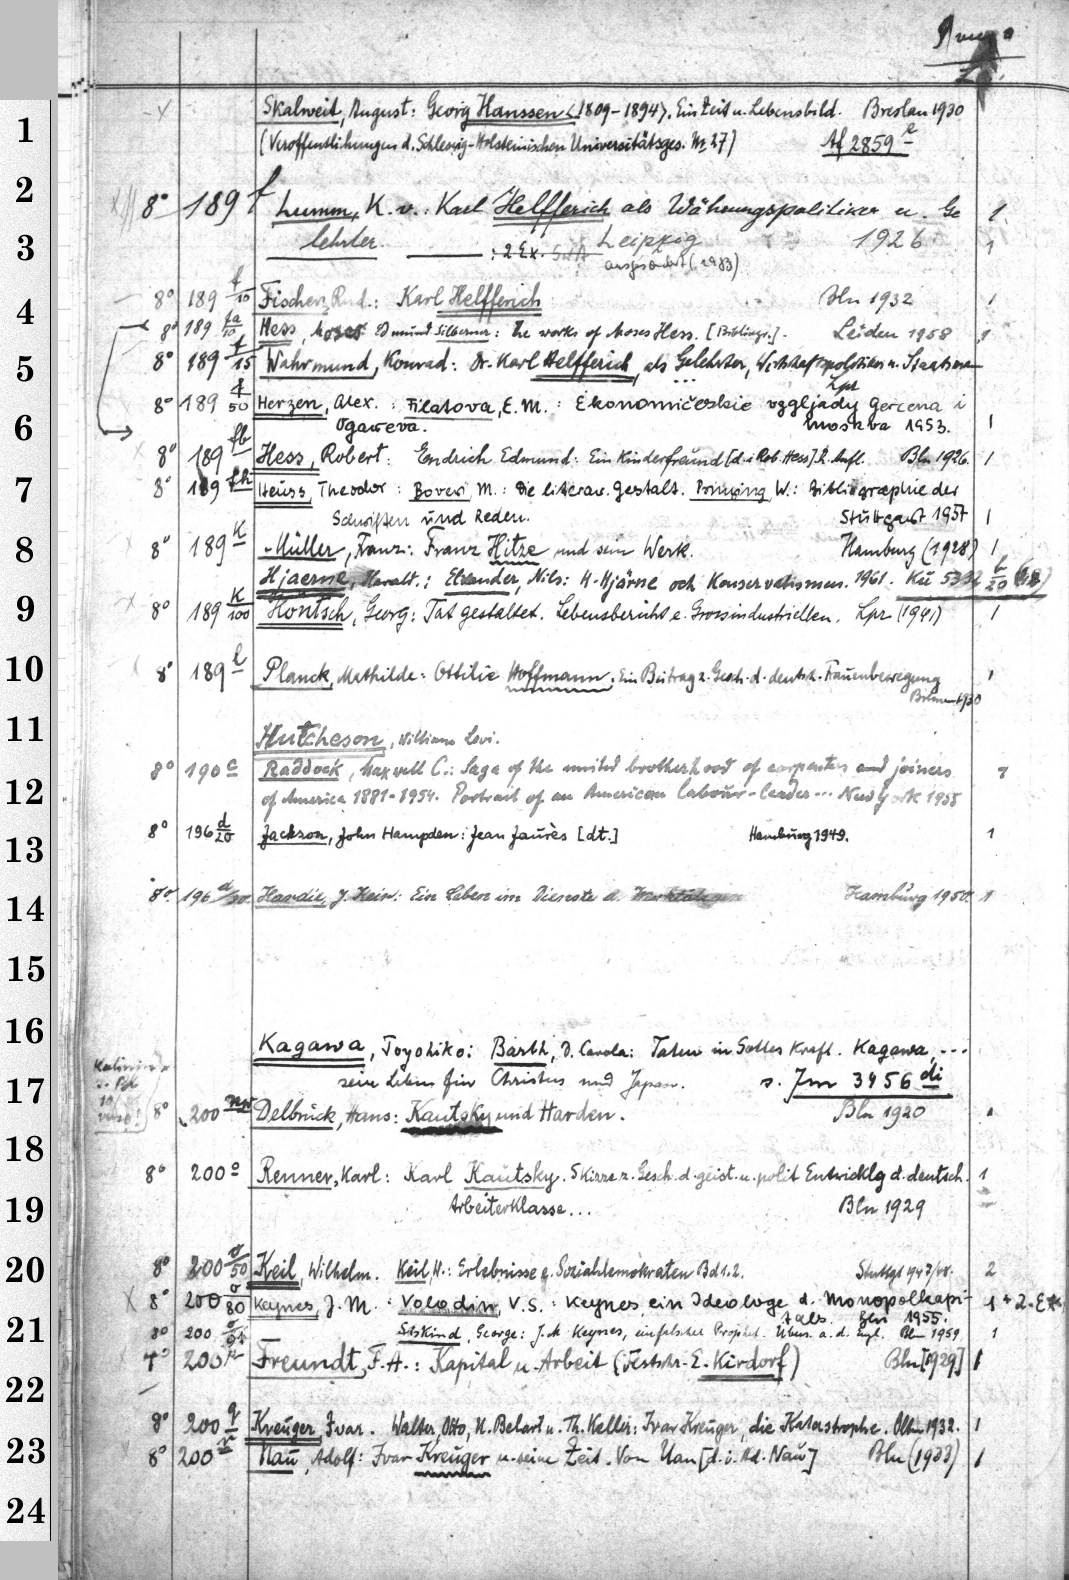 1
Skalweit, August: Georg Hanssen (1809-1894). Ein Zeit u. Lebensbild. Breslau 1930
(Veröffentlichungen d. Schleswig-Holsteinischen Universitätsges. Nr 27) Af 2859 e
2
8° 189 f Lumm, K. v.: Karl Helfferich als Währungspolitiker u. Ge 1.
3
lehrter. : 2 Ex. Leipzig 1926 1
ausgesondert (1983)
4
8° 189 f/10 Fischer, Rud.: Karl Helfferich Bln 1932 1
8° 189 fa/10 Hess, Moses Edmund Silberner: The works of Moses Hess. [Bibliogr.]. Leiden 1958 1
5
8° 189 f/15 Wahrmund, Konrad: Dr. Karl Helfferich, als Gelehrter, Wirtschaftspolitiker u. Staatsman
Lpz
8° 189 f/50 Herzen, Alex.: Filatova, E. M.: Ekonomičeskie vzgljady Gercena i
6
Ogareva. Moskva 1953. 1
8° 189 fb Hess, Robert: Endrich Edmund: Ein Kinderfreund [d. i. Rob. Hess] 2. Aufl. Bln 1926. 1
7
8° 189 fh Heuss, Theodor: Boveri, M.: Die literar. Gestalt. Prinzing, W.: Bibliographie der
Schriften und Reden. Stuttgart 1957 1
8
8° 189 k Müller, Franz: Franz Hitze und sein Werk. Hamburg (1928) 1
Hjaerne, Haralt.: Elvander, Nils: H. Hjärne och Konservatismen. 1961. Kü 5332
9
8° 189 k/100 Höntsch, Georg: Tat gestaltet. Lebensbericht e. Grossindustriellen. Lpz (1941) 1
10
8° 189 l Planck, Mathilde: Ottilie Hoffmann. Ein Beitrag z. Gesch. d. deutsch. Frauenbewegung 1
Bremen 1930
11
Hutcheson, William Levi.
8° 190 c Raddock, Maxwell C.: Saga of the united brotherhood of carpenters and joiners 1
12
of America 1881-1954. Portrait of an American Labour-leader... New York 1955
8° 196 d/20 Jackson, John Hampden: Jean Jaurès [dt.] Hamburg 1949. 1
13
8° 196 d/30. Hardie, J. Keir: Ein Leben im Dienste d. Werktätigen Hamburg 1950. 1
14
15
16
Kagawa, Toyohiko: Barth, D. Carola: Taten in Gottes Kraft. Kagawa, ...
17
sein Leben für Christus und Japan. s. Jm 3456 di
8° 200 Delbrück, Hans: Kautsky und Harden. Bln 1920
18
8° 200 o Renner, Karl: Karl Kautsky. Skizze z. Gesch. d. geist. u. polit Entwicklg d. deutsch. 1
19
Arbeiterklasse... Bln 1929
20
8° 200 o/50 Keil, Wilhelm. Keil, W.: Erlebnisse e. Sozialdemokraten Bd 1.2. Stuttgt 1947/48. 2
8° 200 o/80 Keynes, J. M.: Volodin, V. S.: Keynes, ein Ideologe d. Monopolkapi- 1 + 2. Ex
21
tals. Bln 1955.
8° 200 Süskind, George: J. M. Keynes, ein falscher Prophet. Übers. a. d. Engl. Bln 1959 1
4° 200 p Freundt, F. A.: Kapital u. Arbeit (Festschr. E. Kirdorf) Bln [1929] 1
22
8° 200 q Kreuger, Ivar. Walter, Otto, N. Belart u. Th. Keller: Ivar Kreuger, die Katastrophe. Olten 1932. 1
23
8° 200 r Nau, Adolf: Ivar Kreuger u. seine Zeit. Von Uan [d. i. Ad. Nau] Bln (1933) 1
24